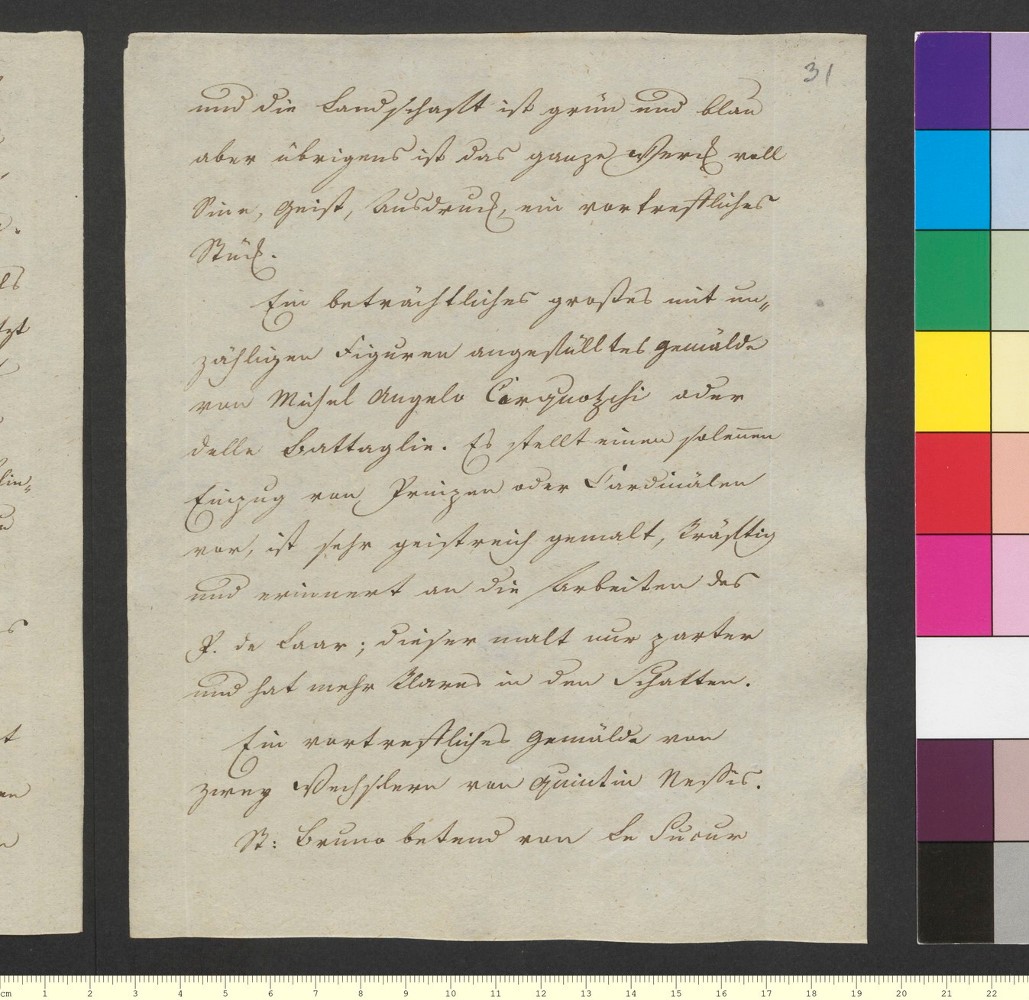 31
und die Landschafft ist grün und blau
aber übrigens ist das ganze Werck voll
Sinn, Geist, Ausdruck, ein vortreffliches
Stück.
Ein beträchtliches großes mit un„
zähligen Figuren angefülltes Gemälde
von Michel Angelo Cerquotzhi oder
delle Battaglie. Es stellt einen solennen
Einzug von Prinzen oder Cardinälen
vor, ist sehr geistreich gemalt, kräfftig
und erinnert an die Arbeiten des
P. de Laar; dieser malt nur zarter
und hat mehr Klares in den Schatten.
Ein vortreffliches Gemälde von
zwey Wechslern von Quintin Messis.
St: Bruno betend von Le Sueur
cm 1 2 3 4 5 6 7 8 9 10 11 12 13 14 15 16 17 18 19 20 21 22